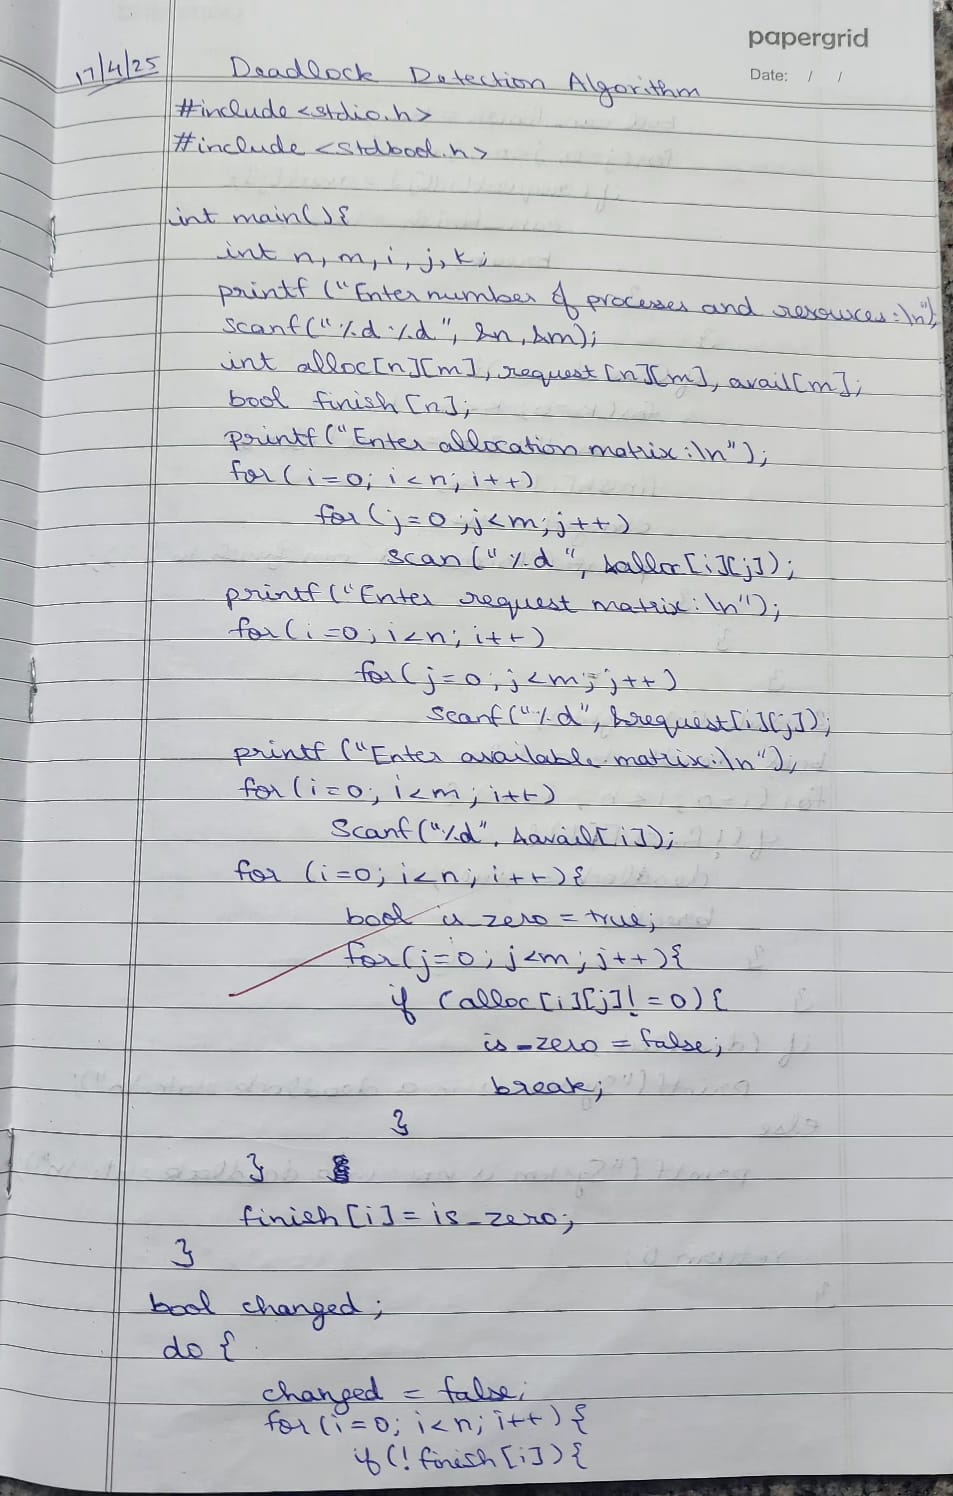 papergrid
Date: / /
17/4/25
Deadlock Detection Algorithm
#include <stdio.h>
#include <stdbool.h>
int main(){
int n, m, i, j, k;
printf ("Enter number of processes and resources:\n");
scanf("%d %d", &n, &m);
int alloc[n][m], request[n][m], avail[m];
bool finish[n];
printf("Enter allocation matrix:\n");
for(i=0; i<n; i++)
for(j=0; j<m; j++)
scan("%d", &alloc[i][j]);
printf("Enter request matrix:\n");
for(i=0; i<n; i++)
for(j=0; j<m; j++)
scanf("%d", &request[i][j]);
printf ("Enter available matrix:\n");
for(i=0; i<m; i++)
Scanf("%d", &avail[i]);
for (i=0; i<n; i++){
bool is_zero = true;
for(j=0; j<m; j++){
if (alloc[i][j]!=0){
is_zero = false;
break;
}
}
finish[i] = is_zero;
}
bool changed;
do {
changed = false;
for(i=0; i<n; i++){
if(!finish[i]){